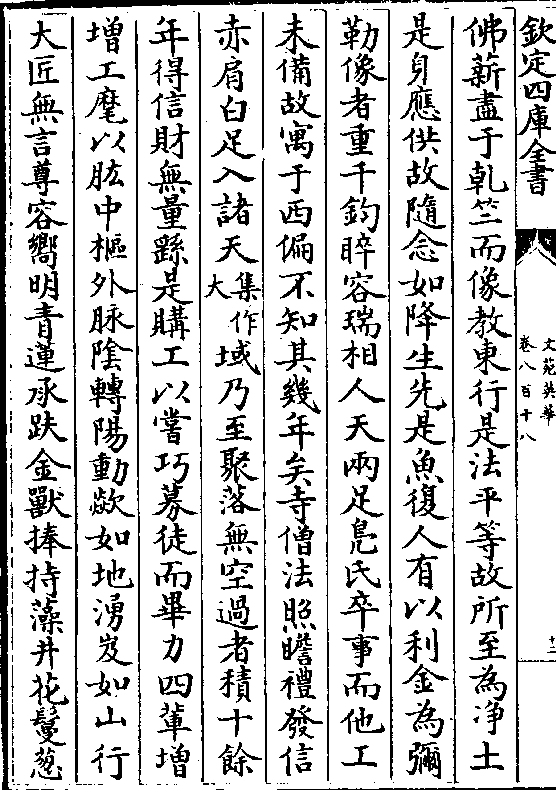 欽定四庫全書
文苑英華
卷八百十八
十二
佛薪盡于乹竺而像教東行是法平等故所至為浄土
是身應供故隨念如降生先是魚復人有以利金為彌
勒像者重千鈞睟容瑞相人天兩足鳧氏卒事而他工
未備故寓于西偏不知其幾年矣寺僧法照瞻禮發信
赤肩白足入諸天集作大域乃至聚落無空過者積十餘
年得信財無量繇是購工以嘗巧募徒而畢力四輩增
增工麾以肱中樞外脉陰轉陽動歘如地湧岌如山行
大匠無言尊容嚮明青蓮承趺金獸捧持藻井花鬘葱